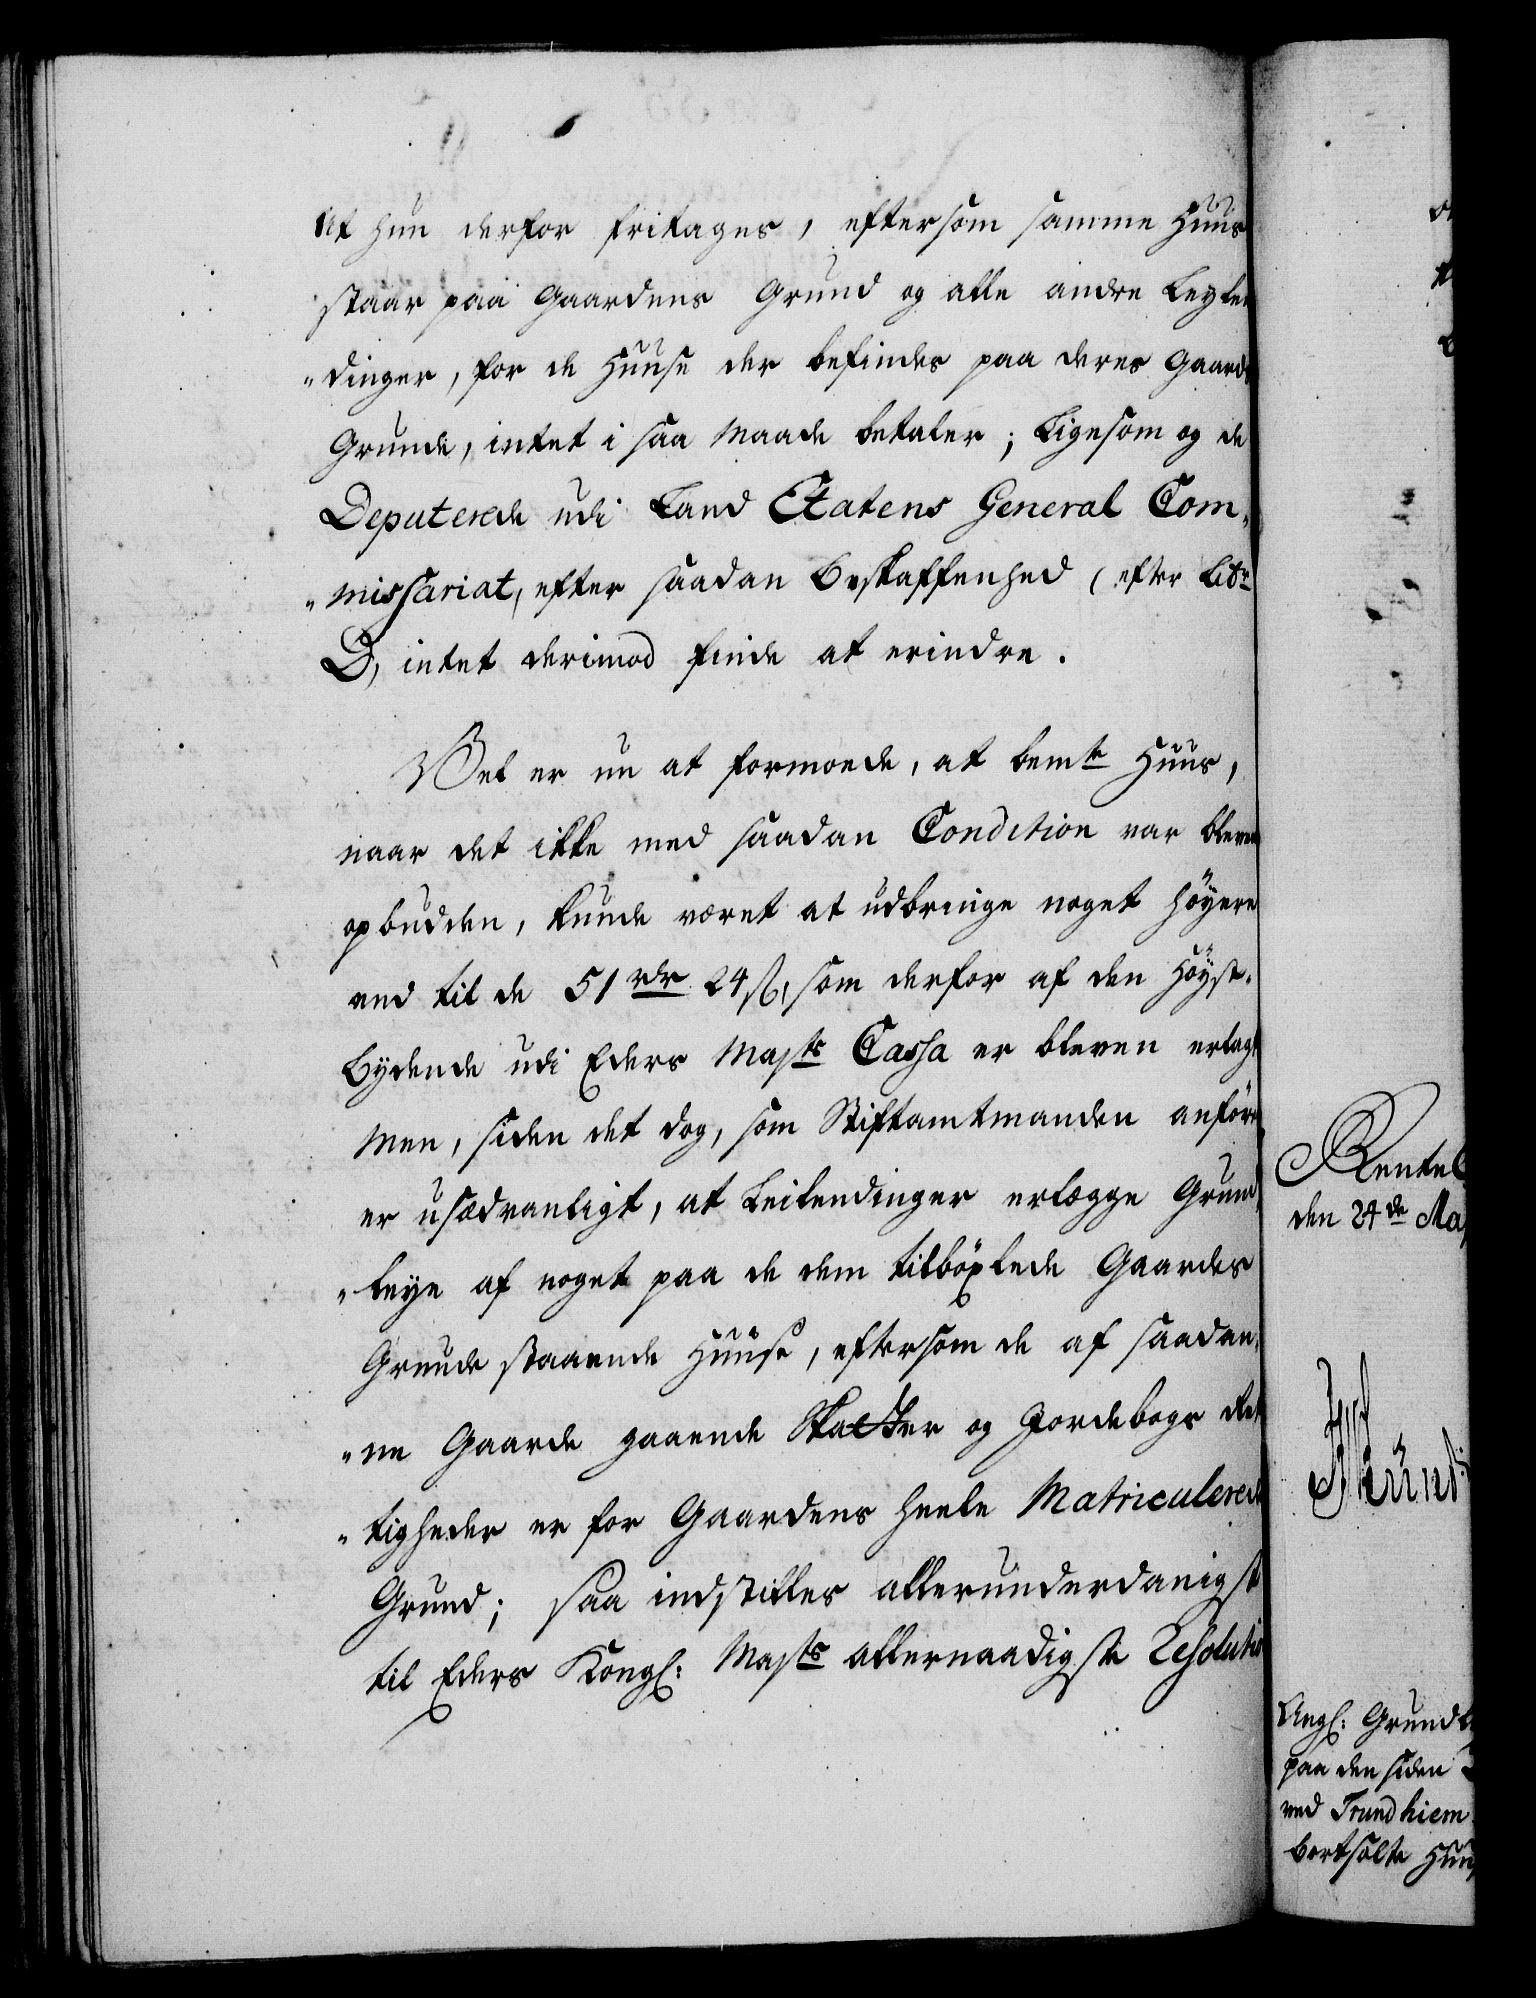 at hun derfor fritages, eftersom samme Huus
staar paa Gaardens Grund og alle andre Leylen
"dinger, for de Huuse der befindes paa deres Gaards
Grunde, intet i saa Maade betaler; Ligesom og de
Deputerede udi Land Etatens General Com„
"missariat, efter saadan Beskaffenhed (efter Litr
D, intet derimod finde at erindre.
Vel er nu at formode, at bemte Huus,
naar det ikke med saadan Condition var bleven
opbudden, kunde været at udbringe noget höyere
end til de 51 rdr 24 ß, som derfor af den Höyst„
bydende udi Eders Majts Cassa er bleven erlagt
Men, siden det dog, som Stiftamtmanden anförer
er usædvanligt, at Leilendinger erlægge Grund
"leye af noget paa de dem tilböxlede Gaardes
Grunde staaende Huuse, eftersom de af saadan„
"ne Gaarde gaaende Skatter og Jordebogs Ret
"tigheder er for Gaardens heele Matriculerede
Grund; saa indstilles allerunderdanigst
til Eders Kongl: Majts allernaadigste Resolutio
Rente
den 24de Maj
Angl: Grundle
paa den siden
ved Trundhiem
bortsolte Huus